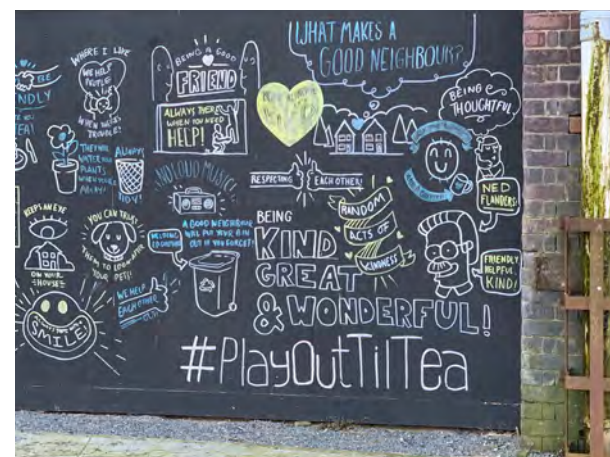 WHAT MAKES A
GOOD NEIGHBOUR?
WHERE I LIVE
WE HELP
PEOPLE
WHEN IN
TROUBLE!
BEING A GOOD
FRIEND
ALWAYS THERE
WHEN YOU NEED
HELP!
BEING
THOUGHTFUL
BE
NDLY
THEY WILL
WATER YOUR
PLANTS
WHEN YOU'RE
AWAY!
ALWAYS
TIDY!
NO LOUD MUSIC!
RESPECTING
EACH OTHER!
NED
FLANDERS!
KEEPS AN EYE
ON YOUR
HOUSE
YOU CAN TRUST
THEM TO LOOK AFTER
YOUR PET!
A GOOD NEIGHBOUR
WILL PUT YOUR BIN
OUT IF YOU FORGET!
BEING
KIND
GREAT
& WONDERFUL!
RANDOM
ACTS OF
KINDNESS
FRIENDLY
HELPFUL,
KIND!
WE HELP
EACH OTHER
OUT
SMILE!
#PlayOutTilTea